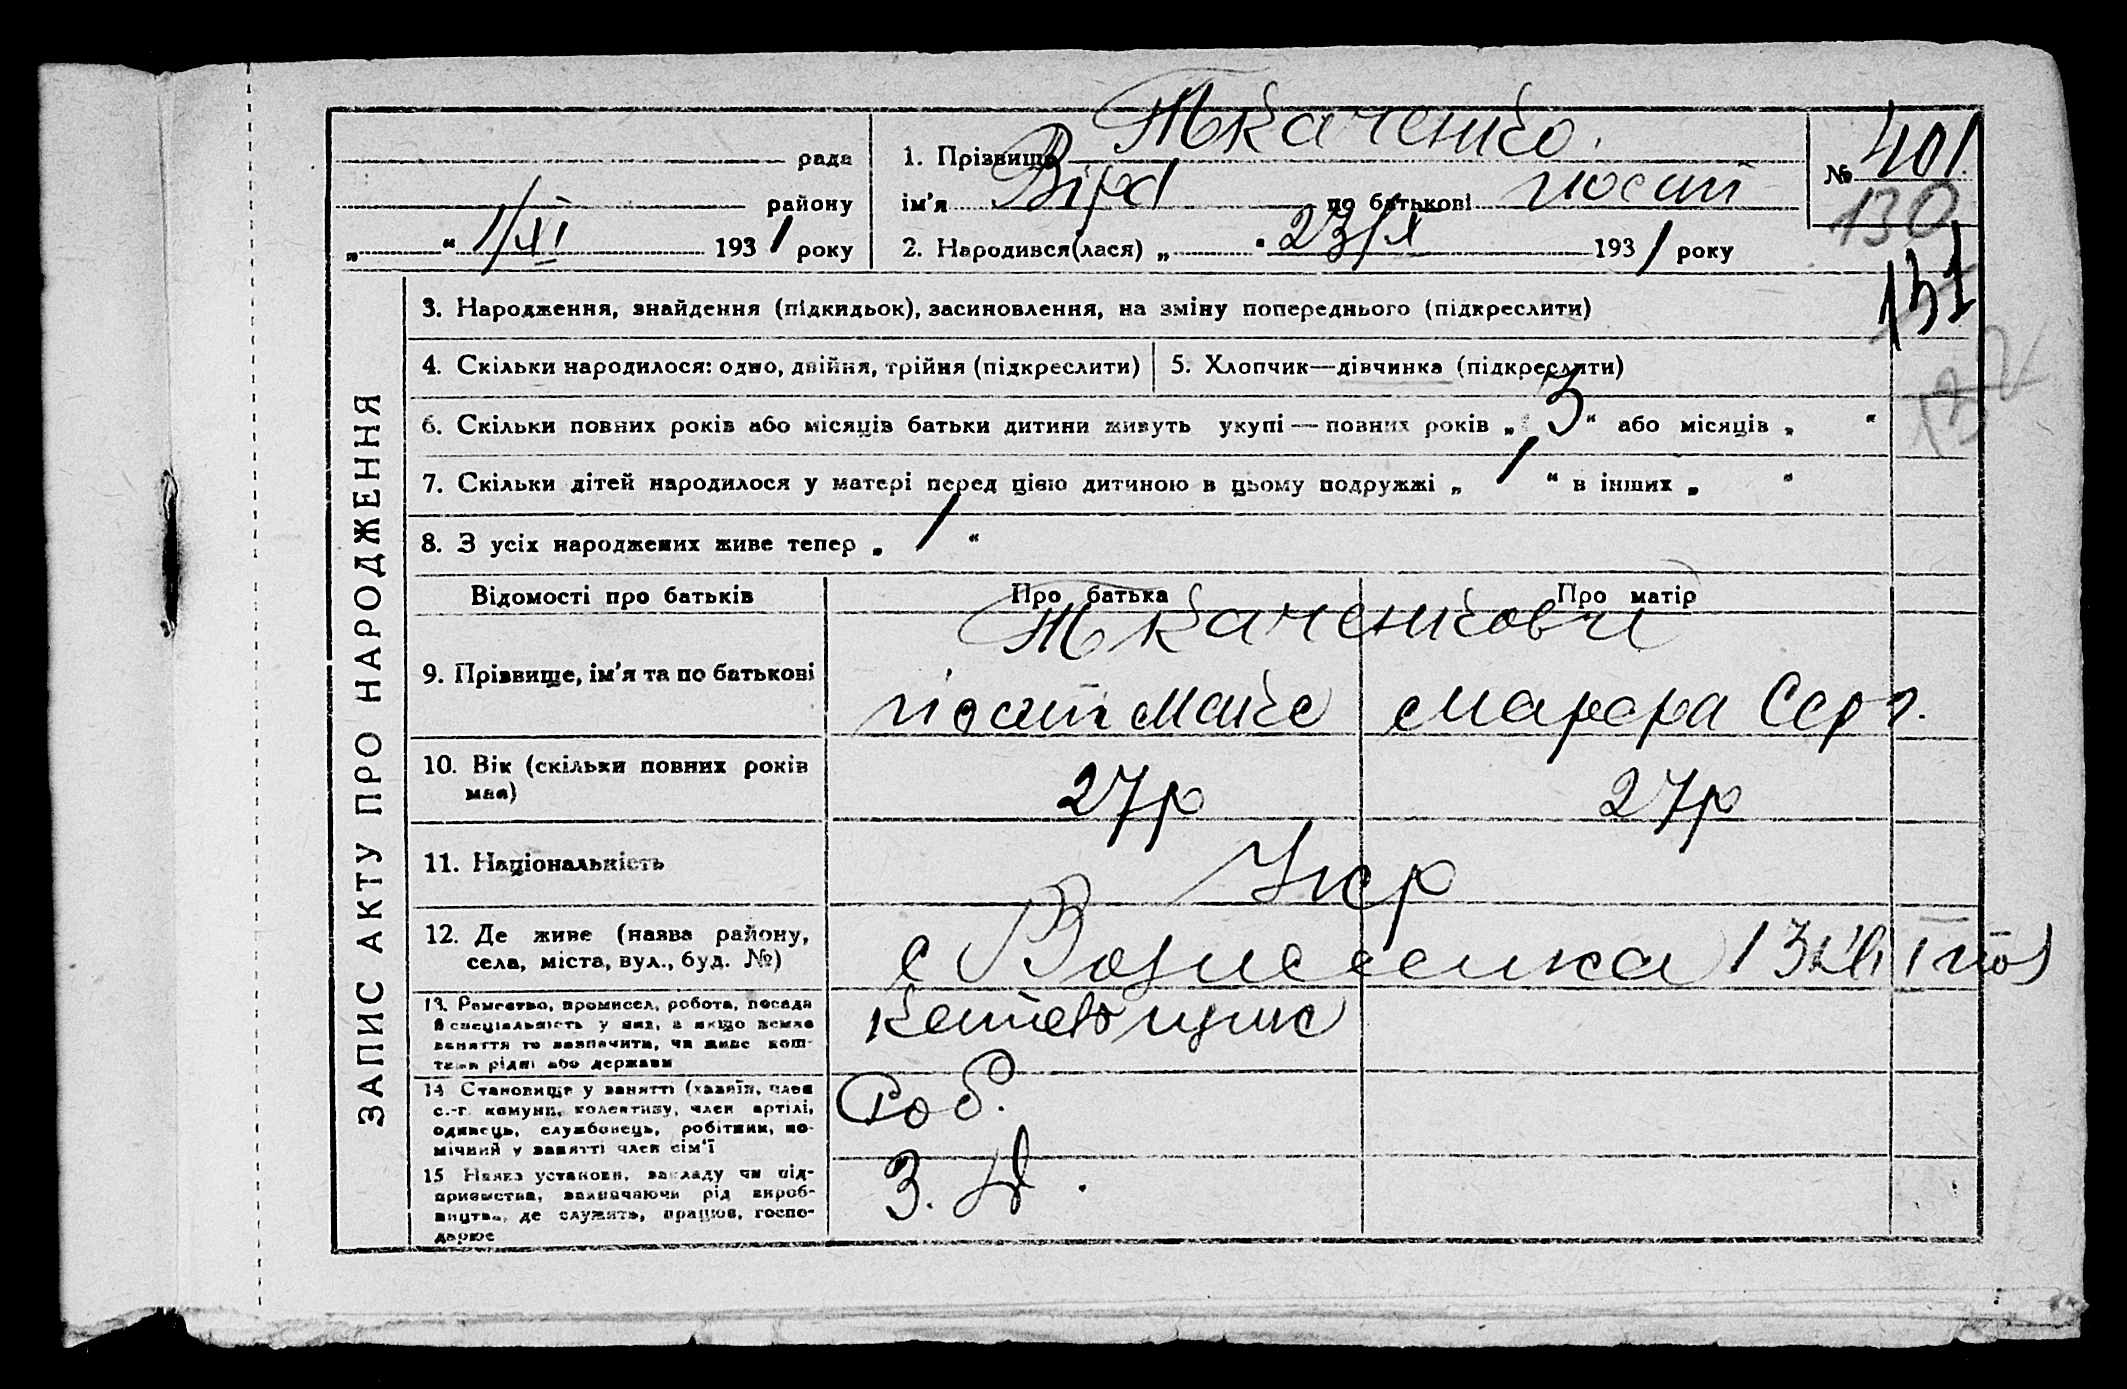 Ткаченко.
рада
1. Прізвище
№ 401.
району
ім'я Віра по батькові Йосип
130
„ “ 1/XI 1931 року
2. Народився(лася) „ “ 23/X 1931 року
131
3. Народження, знайдення (підкидьок), засиновлення, на зміну попереднього (підкреслити)
4. Скільки народилося: одно, двійня, трійня (підкреслити)
5. Хлопчик—дівчинка (підкреслити)
132
6. Скільки повних років або місяців батьки дитини живуть укупі — повних років „ 3 “ або місяців „ “
7. Скільки дітей народилося у матері перед цією дитиною в цьому подружжі „ 1 “ в інших „ “
8. З усіх народжених живе тепер „ 1 “
ЗАПИС АКТУ ПРО НАРОДЖЕННЯ
Відомості про батьків
Про батька
Про матір
Ткаченкови
9. Прізвище, ім'я та по батькові
Йосип
Марфа Серг.
10. Вік (скільки повних років
має)
27р
27р
11. Національність
Укр
12. Де живе (назва району,
села, міста, вул., буд. №)
с Вознесенка 13
13. Ремество, промисел, робота, посада
й спеціяльність у них, а якщо немає
заняття то зазначити, чи живе кош-
тами рідні або держави
14 Становище у занятті (хазяїн, член
с.-г. комуни, колективу, член артілі,
одинець, службовець, робітник, по-
мічний у занятті член сім'ї
Роб.
15 Назва установи, закладу чи під-
приємства, зазначаючи рід вироб-
ництва, де служить, працює, госпо-
дарює
З.